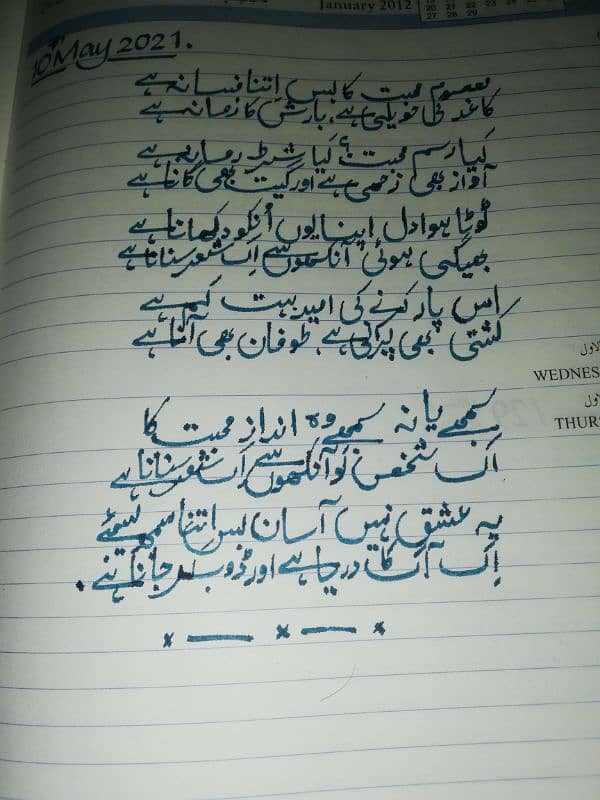 January 2012
20 21 22
27 28 29
10th May 2021.
معصوم محبت کا بس اِتنا فسانہ ہے
کاغذ کی حویلی ہے، بارش کا زمانہ ہے
کیا رسمِ محبت ہے کیا شرطِ زمانہ ہے
آواز بھی زخمی ہے اور گیت بھی گانا ہے
ٹوٹا ہوا دل اپنا یوں اُنکو دکھانا ہے
بھیگی ہوئی آنکھوں سے اِک شعر سنانا ہے
اس پار کرنے کی امید بہت کم ہے
کشتی بھی پرانی ہے، طوفان بھی آنا ہے
سمجھے یا نہ سمجھے وہ اندازِ محبت کا
اک شخص کو آنکھوں سے اِک شعر سنانا ہے
یہ عشق نہیں آسان بس اِتنا سمجھ لیجئے
اِک آگ کا دریا ہے اور ڈوب کر جانا ہے۔
x — x — x
الاول
WEDNES
الاول
THUR